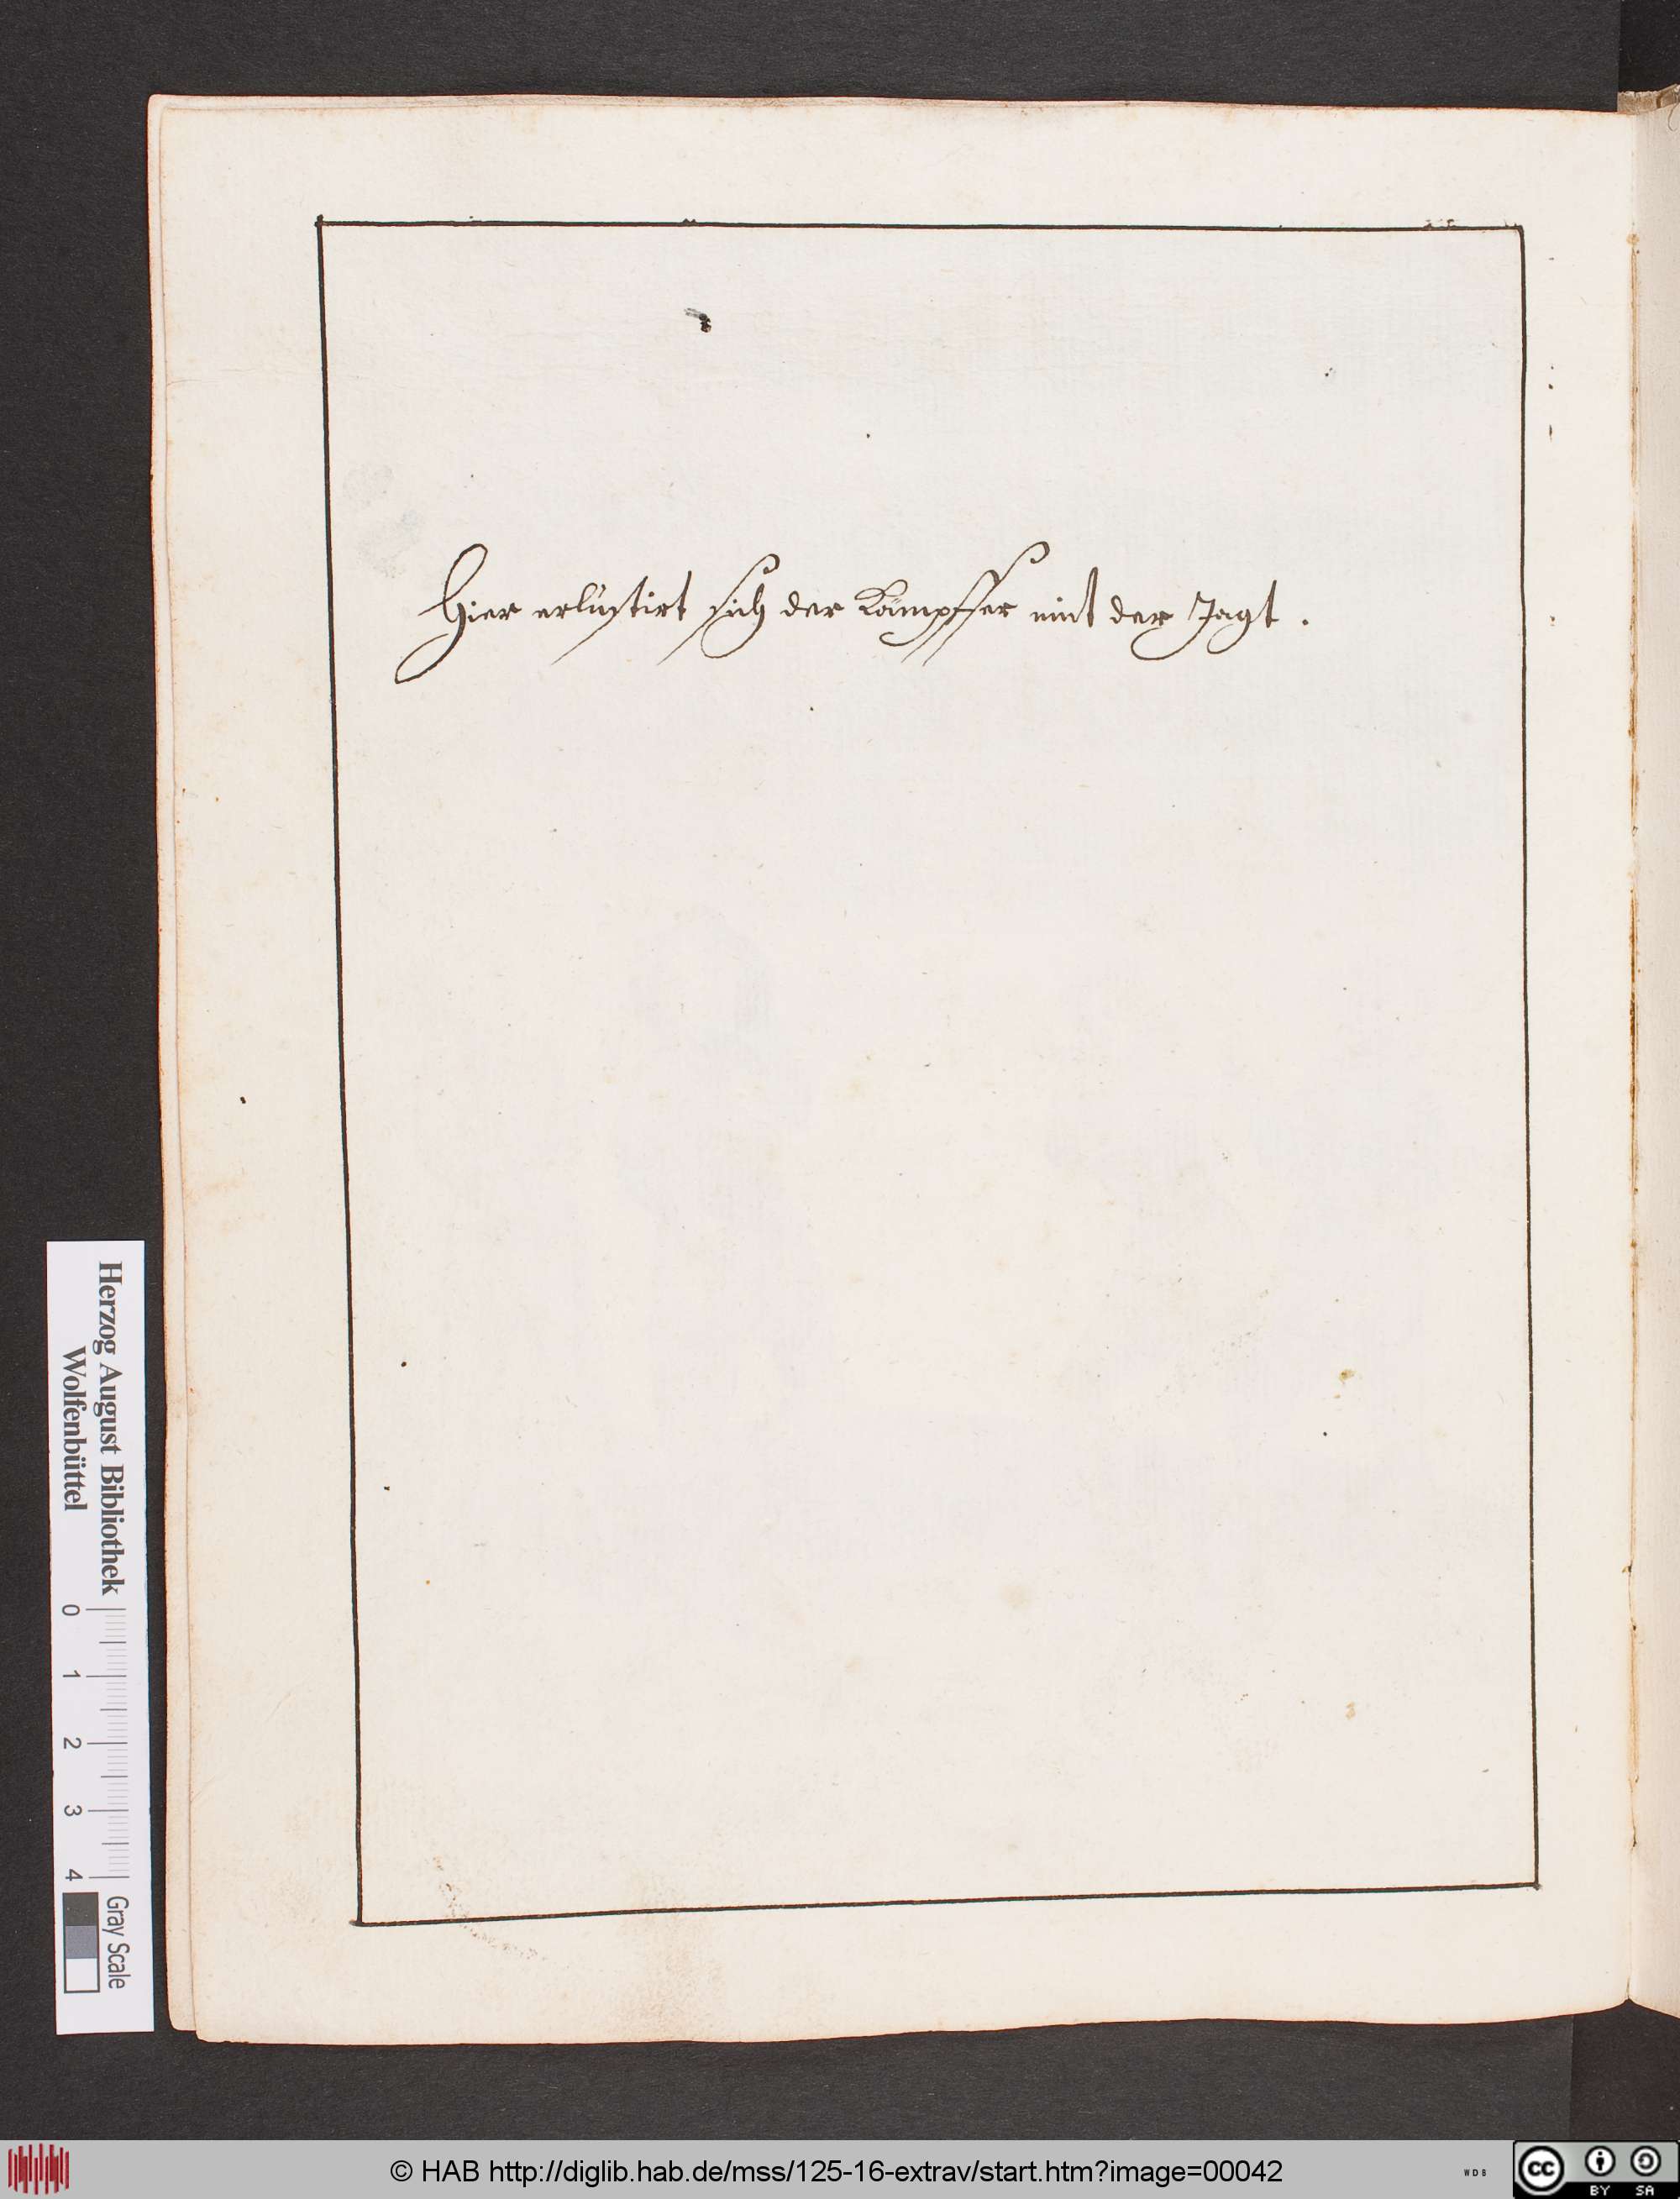 Hier erlustirt sich der Kämpffer mit der Jagt.
Herzog August Bibliothek
Wolfenbüttel
0 1 2 3 4
Gray Scale
© HAB http://diglib.hab.de/mss/125-16-extrav/start.htm?image=00042
WDB
cc BY SA